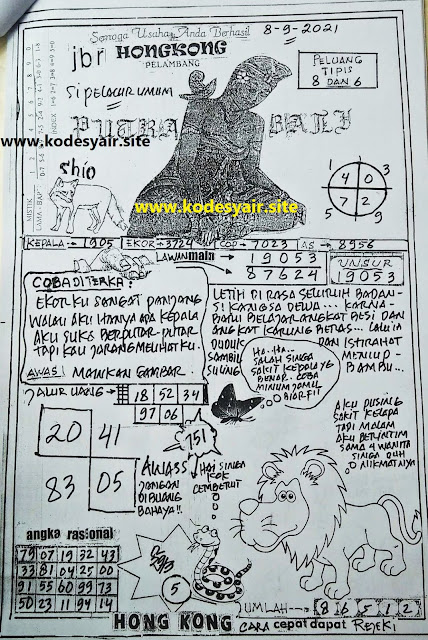 Semoga Usaha Anda Berhasil
8-9-2021
jbr HONGKONG
PELAMBANG
PELUANG
TIPIS
8 DAN 6
SI PELACUR UMUM
PUTRA BALI
www.kodesyair.site
www.kodesyair.site
shio
4 0
1 3
7 2
5 9
KEPALA → 1905 EKOR → 3724 COP → 7023 AS → 8956
LAWAN main
19053
87624
UNSUR
19053
COBA DITERKA:
EKORKU SANGAT PANJANG
WALAU AKU HANYA ADA KEPALA
AKU SUKA BERPUTAR-PUTAR
TAPI KAU JARANG MELIHATKU.
AWAS! MAINKAN GAMBAR.
LETIH DI RASA SELURUH BADAN-
SI KANGSA DEWA... KARNA-
BARU BELAJAR ANGKAT BESI DAN
ANGKAT KARUNG BERAS... LALU IA
DUDUK DAN ISTIRAHAT
SAMBIL MENIUP-
SILUNG BAMBU...
HA.. HA..
SALAH SINGA
SAKIT KEPALA YG
BENAR. COBA
MINUM JAMU
JALUR UANG:
18 52 34
97 06
20 41
83 05
751
AWASS
JANGAN
DIBUANG
BAHAYA!!
HAI SINGA
KOK
CEMBERUT
AKU PUSING
SAKIT KEPALA
TAPI MALAM
AKU BERINTIM
SAMA 4 WANITA
SINGA OUH
NIKMATNYA
angka rasional
79 07 19 32 43
33 81 04 25 00
91 55 60 99 73
50 23 11 94 14
5
JUMLAH--→ 8 6 5 1 2
HONG KONG CARA cepat dapat REJEKI